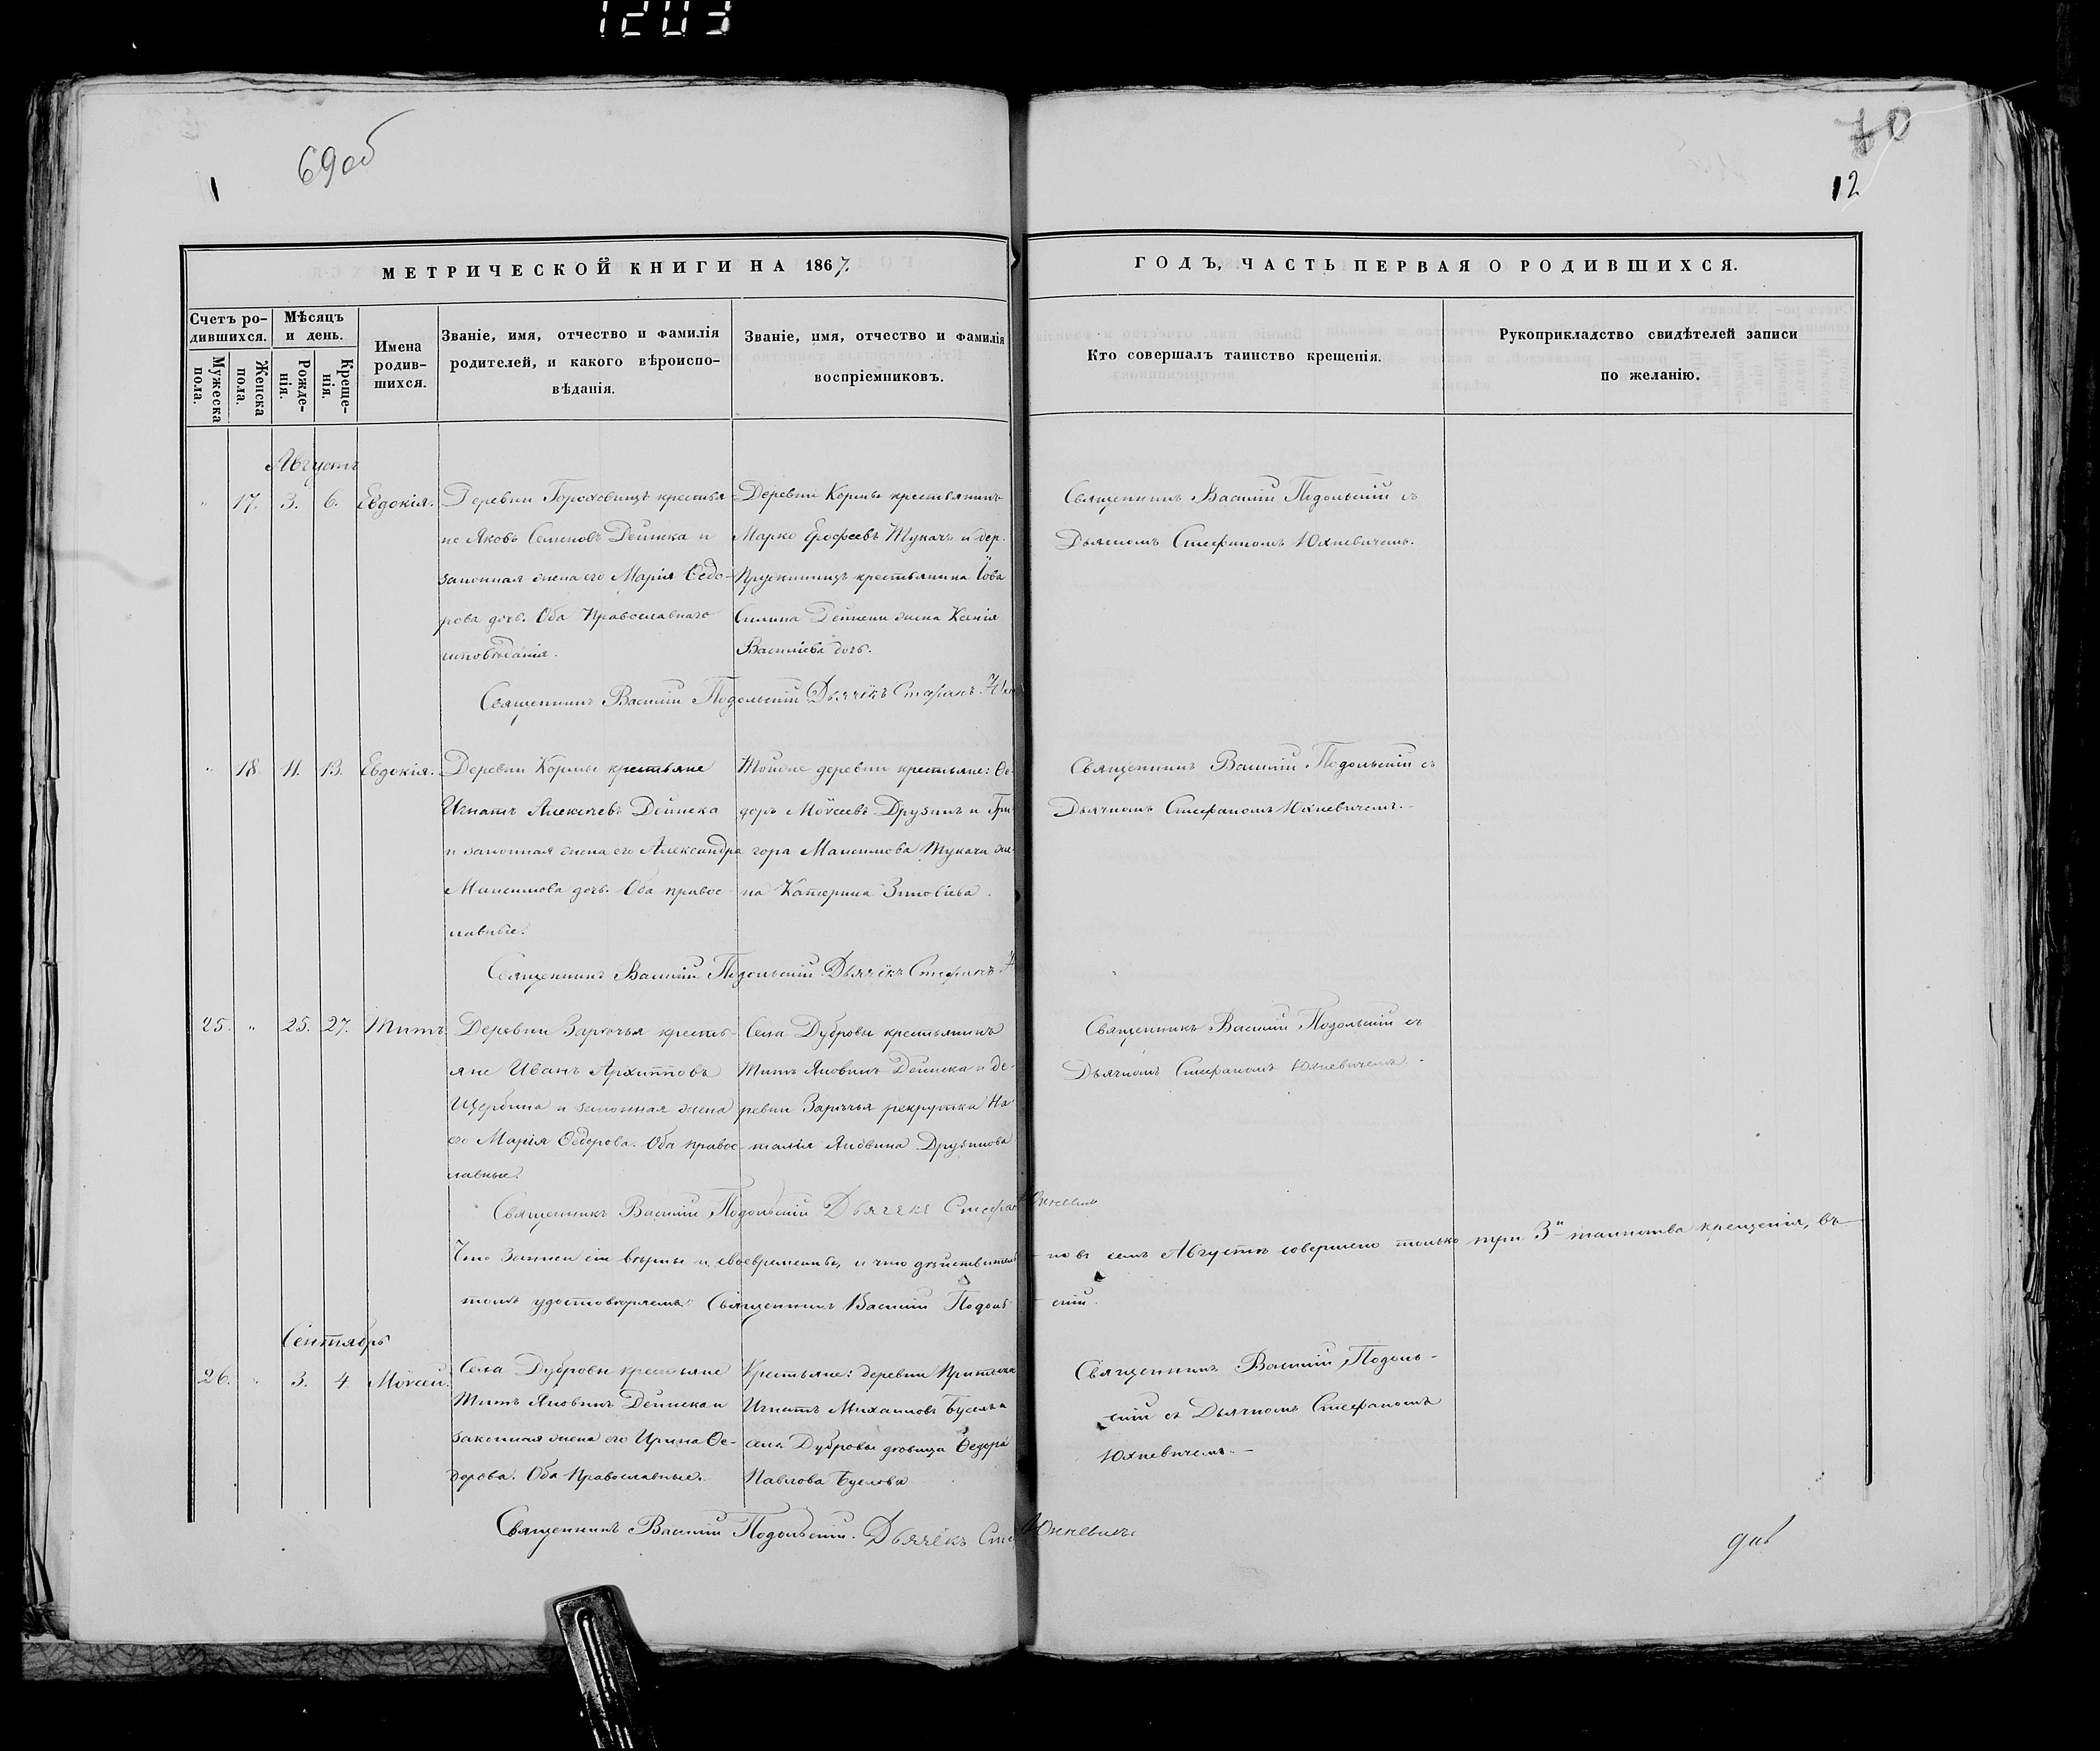 1203
69об
1
70
12
МЕТРИЧЕСКОЙ КНИГИ НА 1867.
ГОДЪ, ЧАСТЬ ПЕРВАЯ О РОДИВШИХСЯ.
Счетъ ро-
дившихся.
Мужеска
пола.
Женска
пола.
Мѣсяцъ
и день.
Рожде-
нія.
Креще-
нія.
Имена
родив-
шихся.
Званіе, имя, отчество и фамилія
родителей, и какого вѣроиспо-
вѣданія.
Званіе, имя, отчество и фамилія
воспріемниковъ.
Кто совершалъ таинство крещенія.
Рукоприкладство свидѣтелей записи
по желанію.
Августъ
" 17. 3. 6. Евдокія.
Деревни Гороховищъ крестья-
не Яковъ Семеновъ Дейнека и
законная жена его Марія Ѳедо-
рова дочь. Оба Православнаго
исповѣданія.
Деревни Кормы крестьянинъ
Марко Ерофеевъ Тукачъ и дер.
крестьянина Іова
Силина Дейнеки жена Ксенія
Василіева дочь.
Священникъ Василій Подольскій съ
Дьячкомъ Стефаномъ Юхневичемъ.
Священникъ Василій Подольскій Дьячёкъ Стефанъ Юхн
" 18. 11. 13. Евдокія.
Деревни Кормы крестьяне
Игнатъ Алексѣевъ Дейнека
и законная жена его Александра
Максимова дочь. Оба правос-
лавные.
Тойже деревни крестьяне: Ѳе-
доръ Мойсеевъ Друзинъ и Гри-
гора Максимова Тукача же-
на Катерина Зиновіева.
Священникъ Василій Подольскій съ
Дьячкомъ Стефаномъ Юхневичемъ.
Священникъ Василій Подольскій. Дьячёкъ Стефанъ
25. " 25. 27. Титъ
Деревни Зарѣчья кресть-
яне Иванъ Архипповъ
Щербина и законная жена
его Марія Ѳедорова. Оба правос-
лавные.
Села Дубровы крестьянинъ
Титъ Яковлевъ Дейнека и де-
ревни Зарѣчья рекрутка На-
талія Друзинова
Священникъ Василій Подольскій съ
Дьячкомъ Стефаномъ Юхневичемъ.
Священникъ Василій Подольскій Дьячекъ Стефанъ Юхневичъ
Что записи сіи вѣрны и своевременны, и что дѣйствитель-но въ семъ Августѣ совершено только три 3 таинства крещенія, въ
томъ удостовѣряемъ: Священникъ Василій Подоль-скій.
Сентябрь
26. " 3. 4 Мойсей.
Села Дубровы крестьяне
Титъ Яковлевъ Дейнека и
законная жена его Ирина Ѳе-
дорова. Оба Православные.
Крестьяне: деревни
Игнатъ Михаиловъ и
села Дубровы дѣвица Ѳедора
Павлова
Священникъ Василій Подоль-
скій съ Дьячкомъ Стефаномъ
Юхневичемъ.
Священникъ Василій Подольскій. Дьячёкъ Стеф Юхневичъ